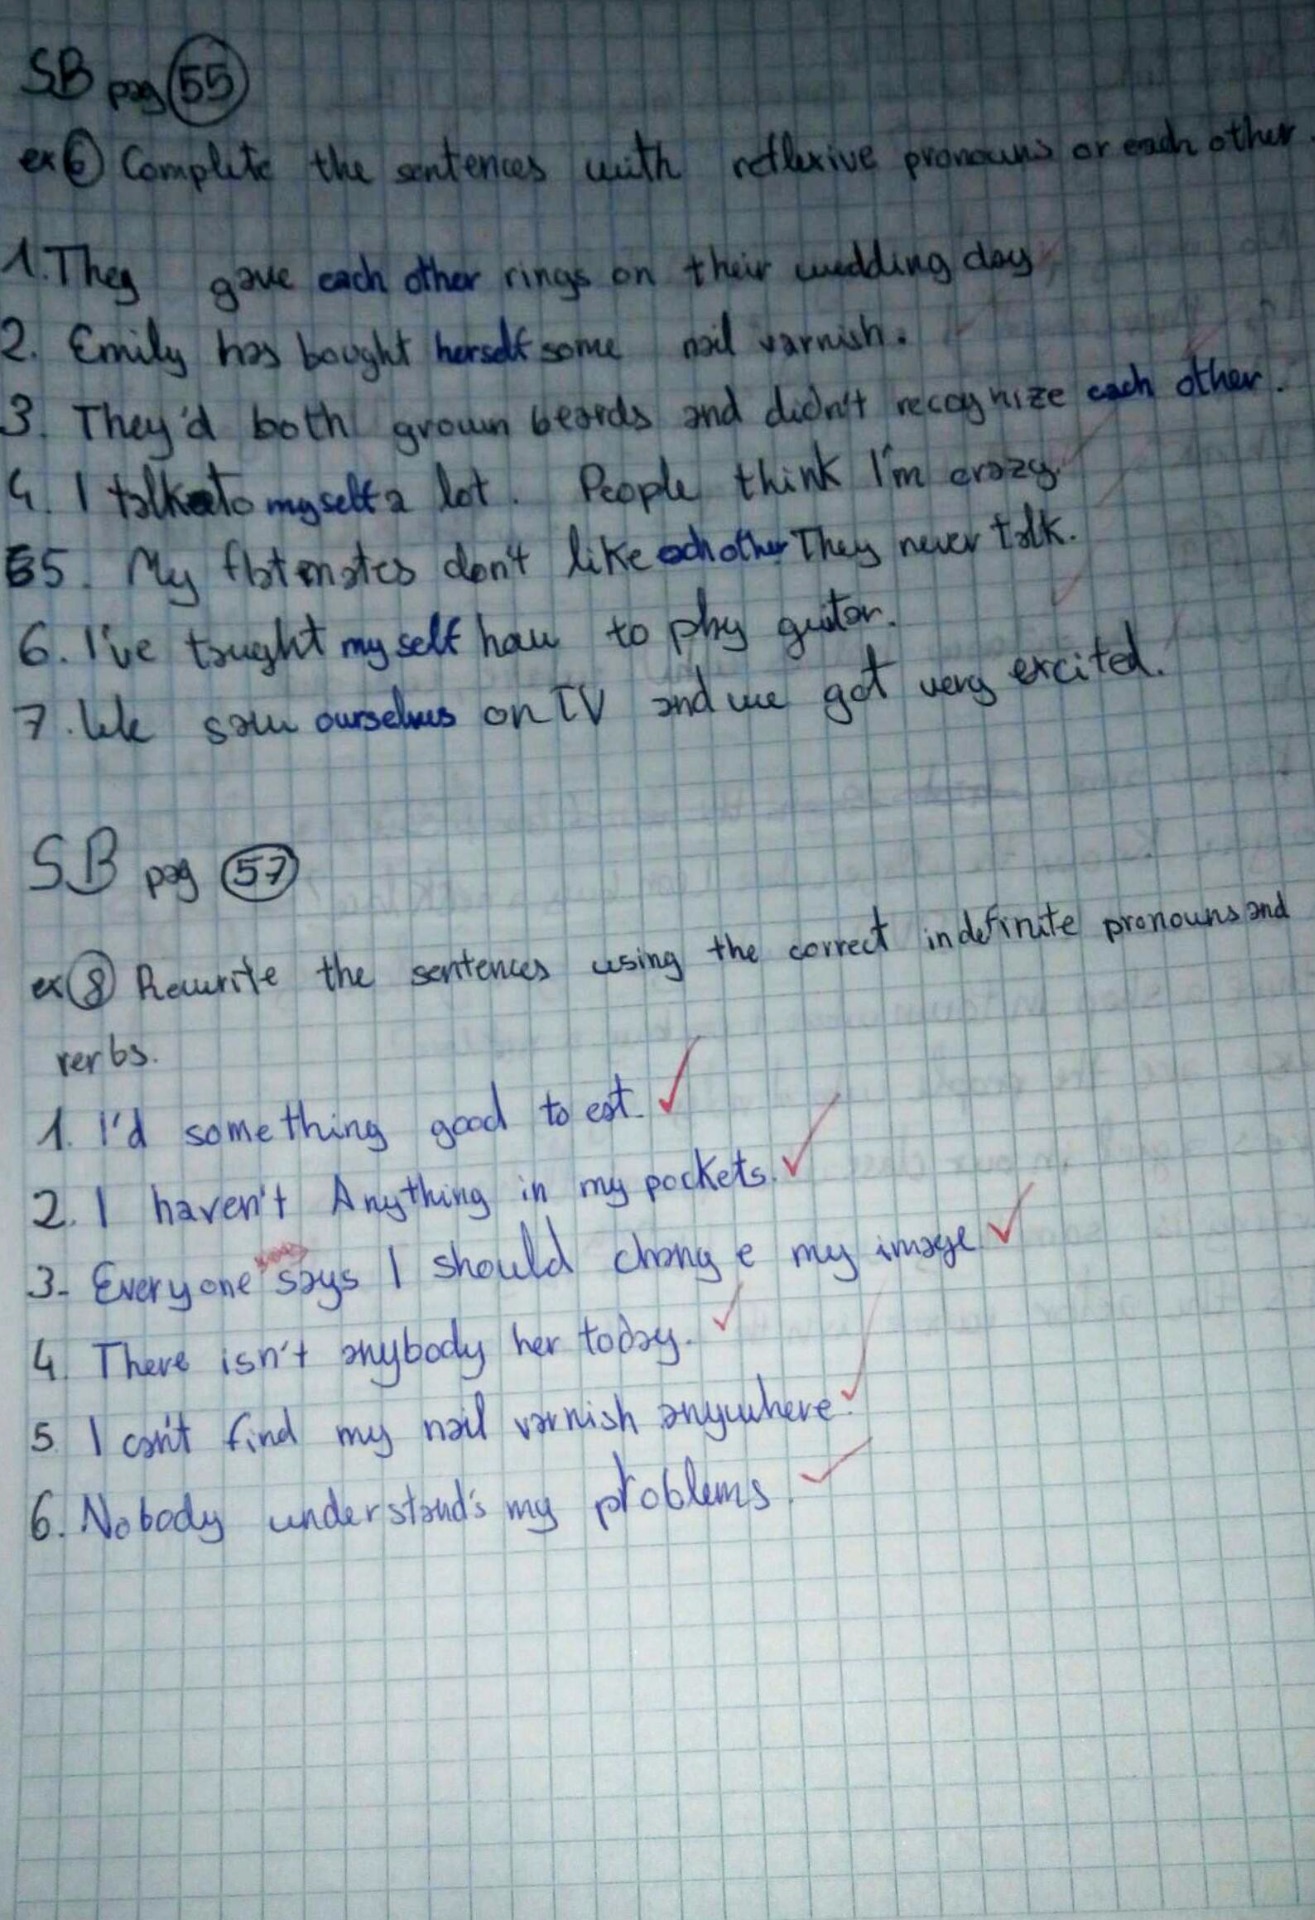 SB pag 55
ex 6 Complete the sentences with reflexive pronouns or each other
1. They gave each other rings on their wedding day
2. Emily has bought herself some nail varnish.
3. They'd both grown beards and didn't recognize each other.
4. I talk to myself a lot. People think I'm crazy.
5. My flatmates don't like each other They never talk.
6. I've taught myself how to play guitar.
7. We saw ourselves on TV and we got very excited.
SB pag 57
ex 8 Rewrite the sentences using the correct indefinite pronouns and
verbs.
1. I'd something good to eat.
2. I haven't Anything in my pockets.
3- Everyone says I should change my image
4. There isn't anybody her today.
5. I can't find my nail varnish anywhere.
6. Nobody understand's my problems.